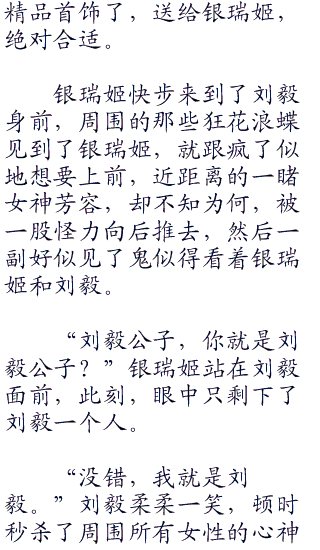 精品首饰了，送给银瑞姬，
绝对合适。
银瑞姬快步来到了刘毅
身前，周围的那些狂花浪蝶
见到了银瑞姬，就跟疯了似
地想要上前，近距离的一睹
女神芳容，却不知为何，被
一股怪力向后推去，然后一
副好似见了鬼似得看着银瑞
姬和刘毅。
“刘毅公子，你就是刘
毅公子？”银瑞姬站在刘毅
面前，此刻，眼中只剩下了
刘毅一个人。
“没错，我就是刘
毅。”刘毅柔柔一笑，顿时
秒杀了周围所有女性的心神